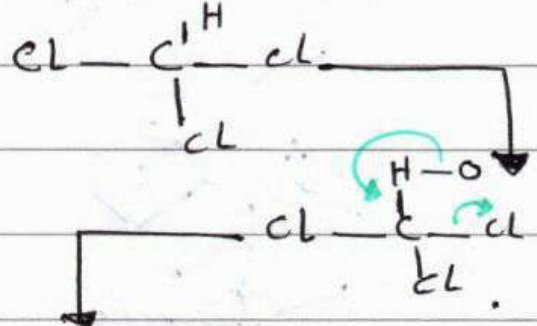 H
Cl — C — Cl
Cl
H — O
Cl — C — Cl
Cl